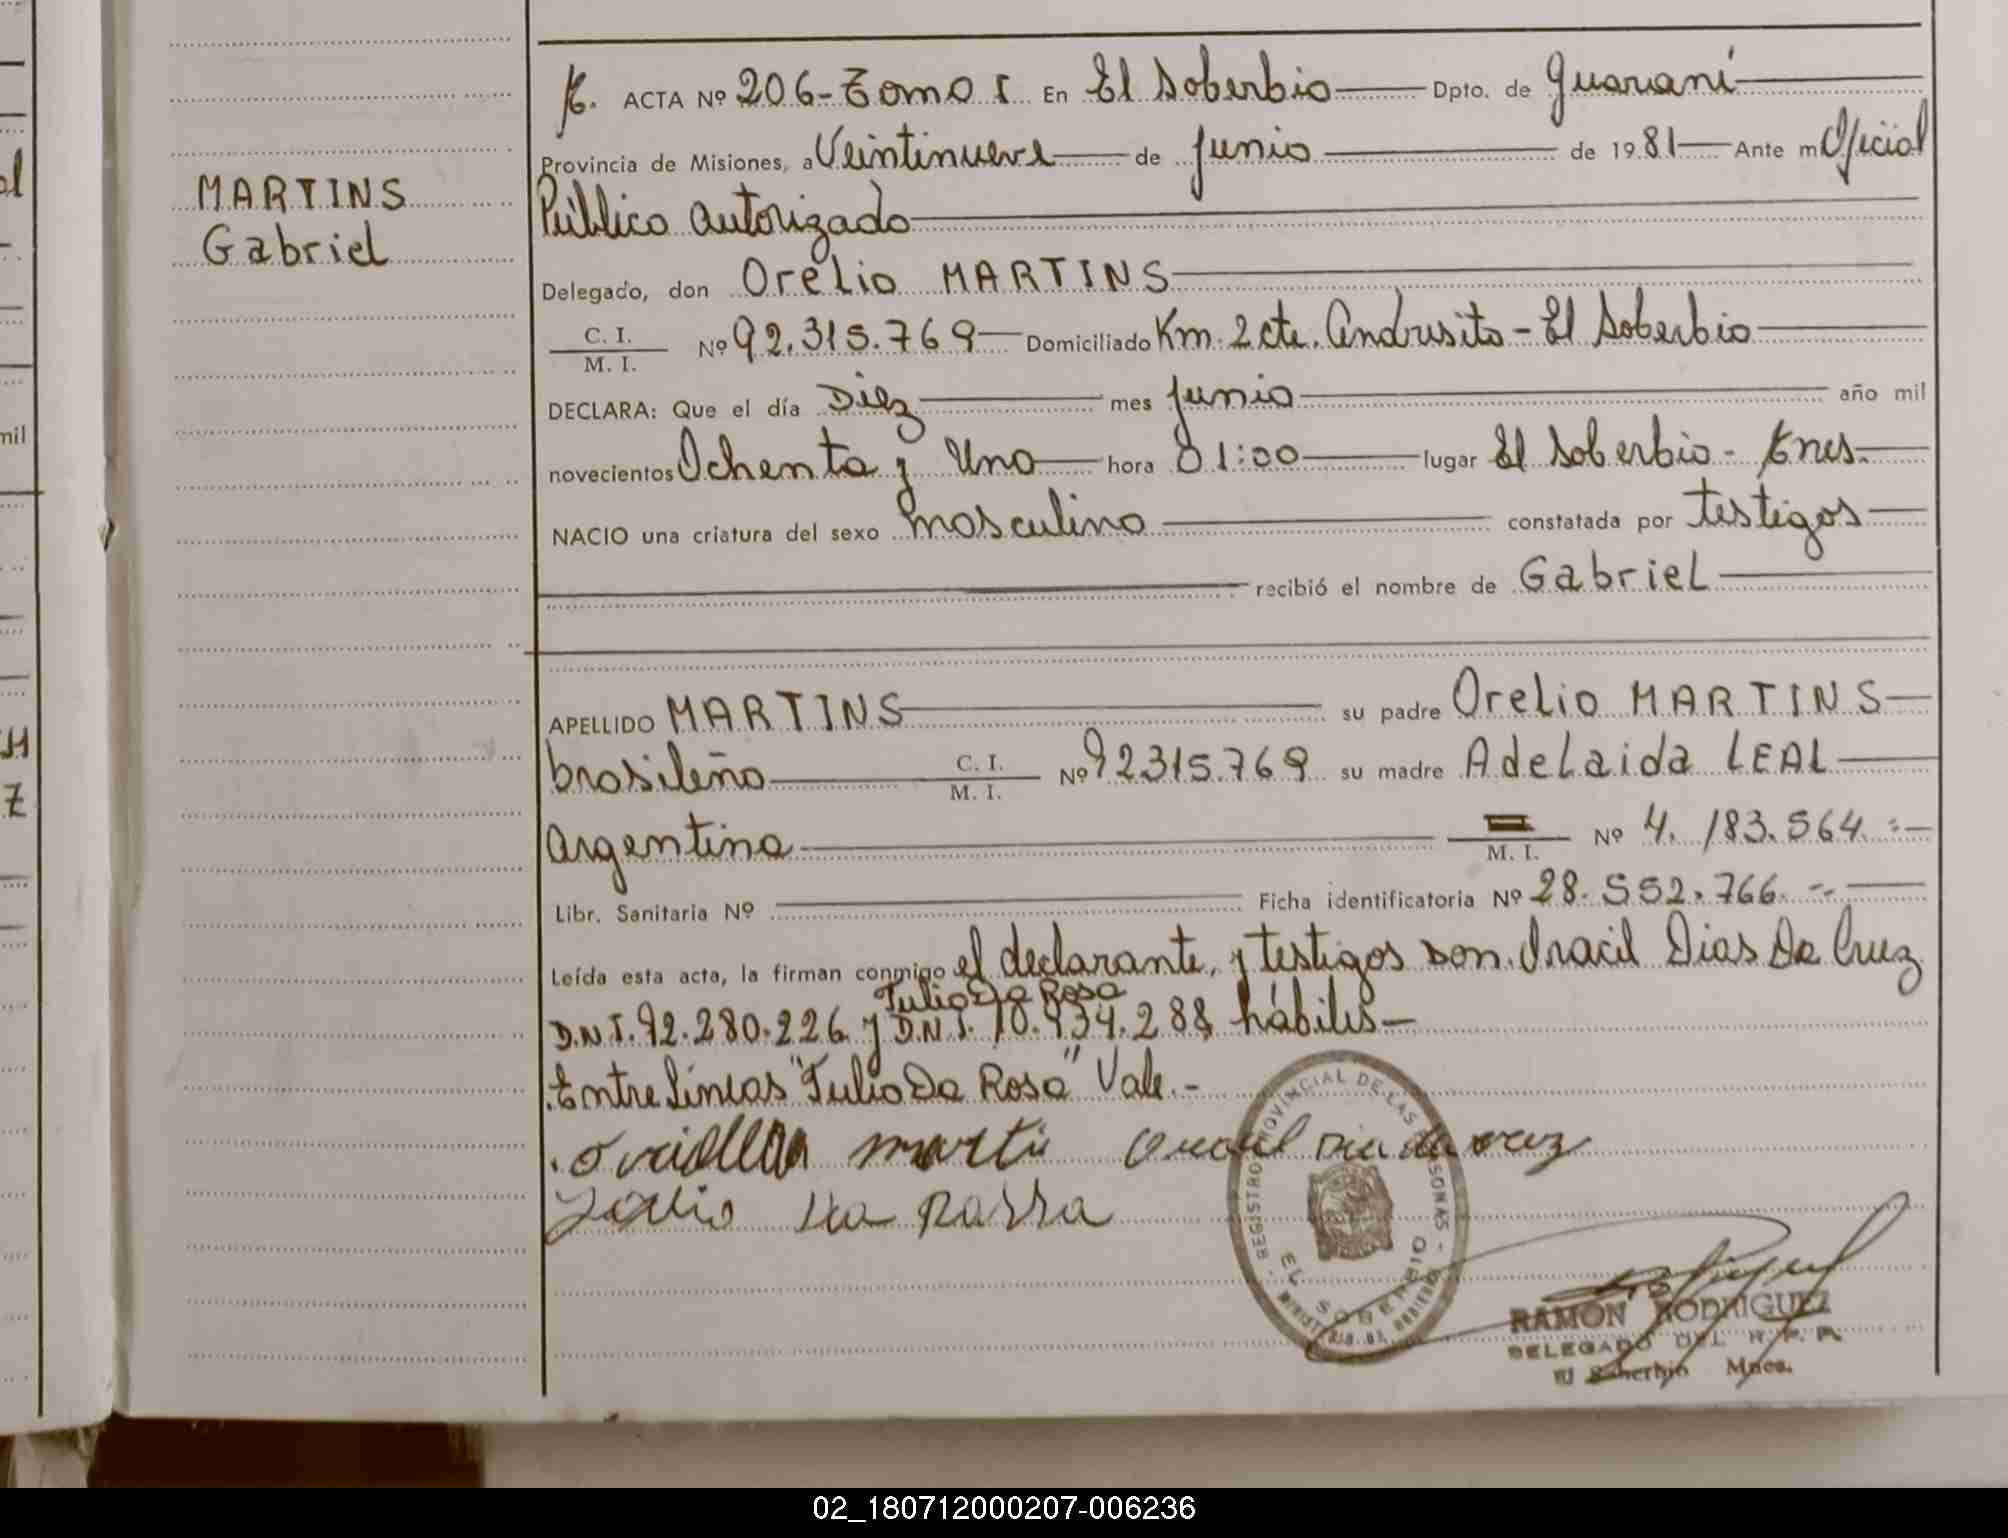 MARTINS
Gabriel
ACTA Nº 206-Tomo I En El Soberbio Dpto. de Guaraní
Provincia de Misiones, a Veintinueve de junio de 1981 Ante mi Oficial
Público autorizado
Delegado, don Orelio MARTINS
C. I.
M. I. Nº 92.315.769 Domiciliado Km. 2 cte. Andresito - El Soberbio
DECLARA: Que el día Diez mes junio año mil
novecientos Ochenta y Uno hora 01:00 lugar El Soberbio -
NACIO una criatura del sexo masculino constatada por testigos
recibió el nombre de Gabriel
APELLIDO MARTINS su padre Orelio MARTINS
brasileño C. I.
M. I. Nº 92315.769 su madre Adelaida LEAL
argentina M. I. Nº 4.183.564.
Libr. Sanitaria Nº Ficha identificatoria Nº 28.552.766.
Leída esta acta, la firman conmigo el declarante, y testigos Don. Iracil Dias Da Cruz
Tulio Da Rosa
D.N.I. 92.280.226 y D.N.I. 10.934.288 hábiles
Entre líneas "Tulio Da Rosa" Vale.-
REGISTRO PROVINCIAL DE LAS PERSONAS
EL SOBERBIO
MINISTERIO DE GOBIERNO
RAMON RODRIGUEZ
DELEGADO DEL R. P. P.
El Soberbio Mnes.
02_180712000207-006236